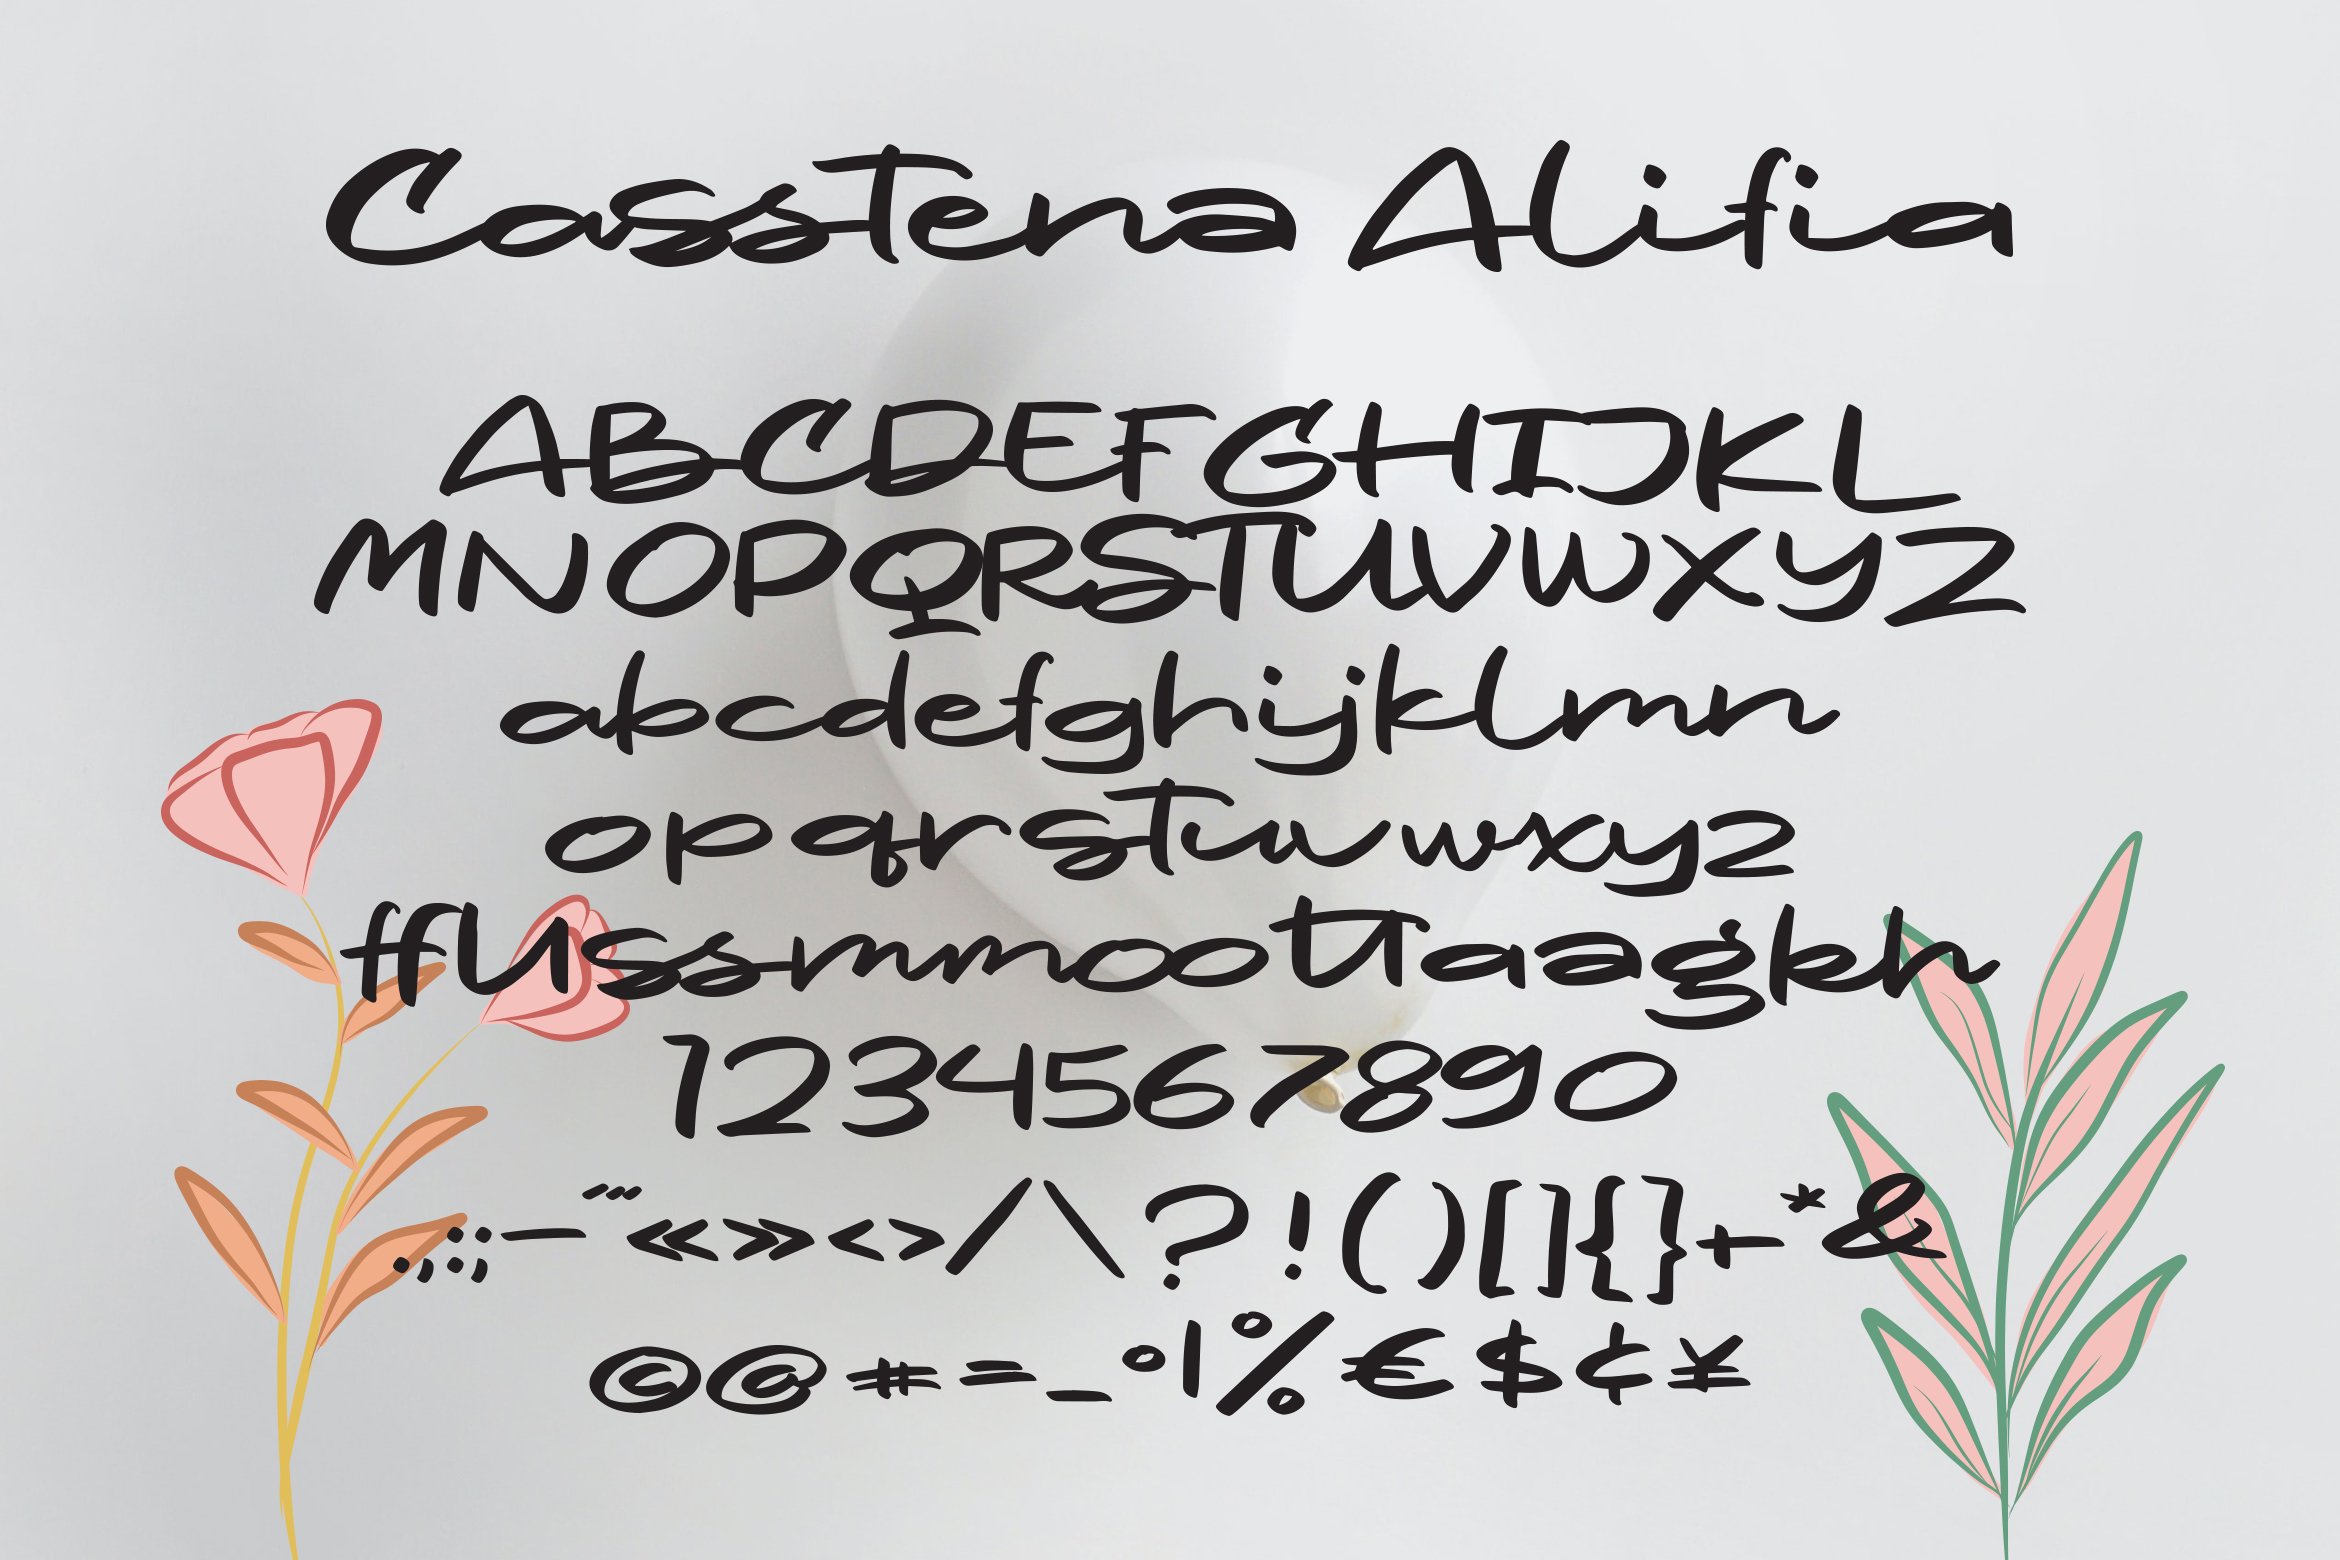 Casstena Alifia
ABCDEFGHIJKL
MNOPQRSTUVWXYZ
abcdefghijklmn
opqrstuvwxyz
ffllssmmoottaagkh
1234567890
.,:;-'"«»<>/\?!()[]{}+*&
©@#=_°|%€$¢¥